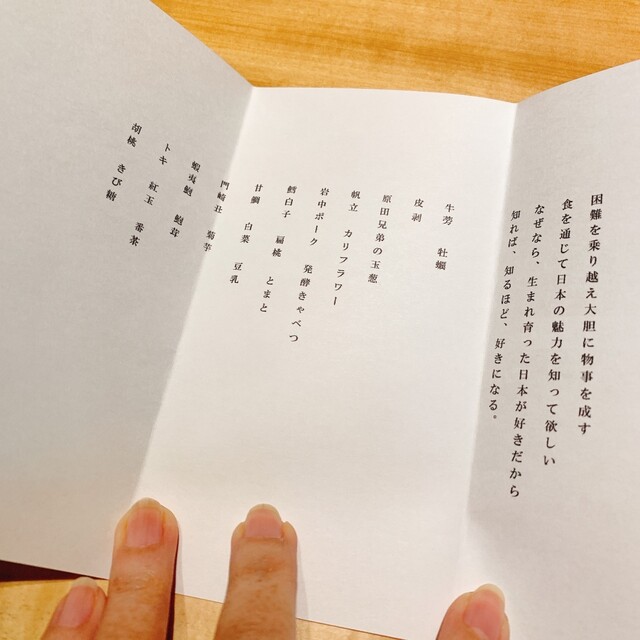 困難を乗り越え大胆に物事を成す
食を通じて日本の魅力を知って欲しい
なぜなら、生まれ育った日本が好きだから
知れば、知るほど、好きになる。
牛蒡 牡蠣
皮剥
原田兄弟の玉葱
帆立 カリフラワー
岩中ポーク 発酵きゃべつ
鱈白子 扁桃 とまと
甘鯛 白菜 豆乳
門崎丑 菊芋
蝦夷鮑 鮑茸
トキ 紅玉 番茶
胡桃 きび糖